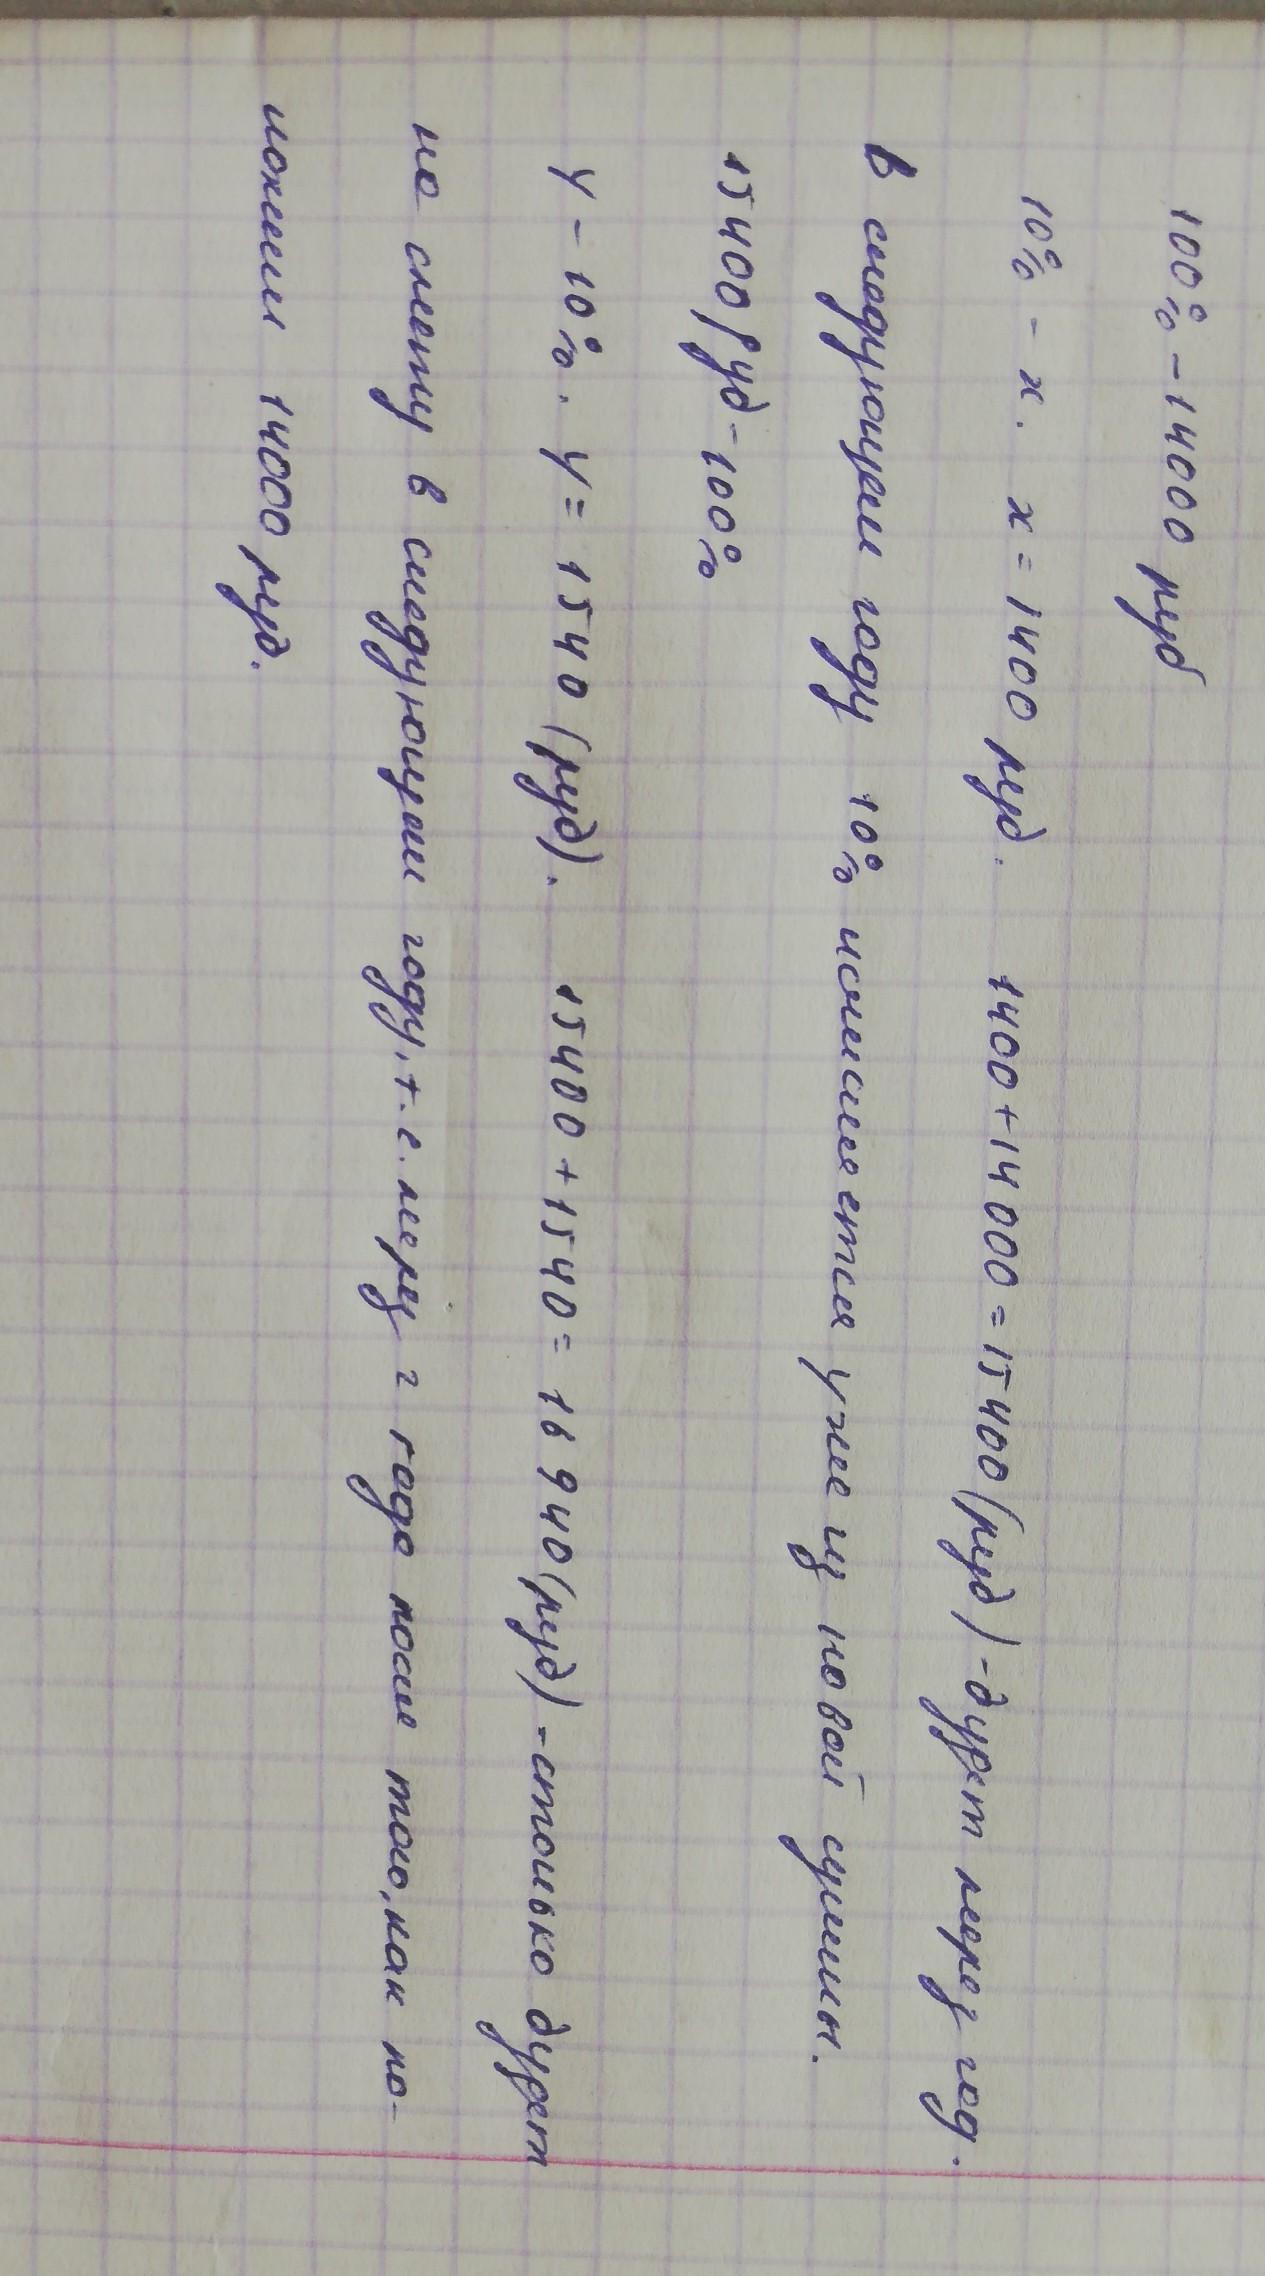 100% - 14000 руб
10% - x. x = 1400 руб. 1400 + 14000 = 15400 (руб) - будет через год.
В следующем году 10% исчисляется уже из новой суммы.
15400 руб - 100%
y - 10%. y = 1540 (руб). 15400 + 1540 = 16940 (руб) - столько будет
на счету в следующем году, т.е. через 2 года после того, как по-
ложили 14000 руб.